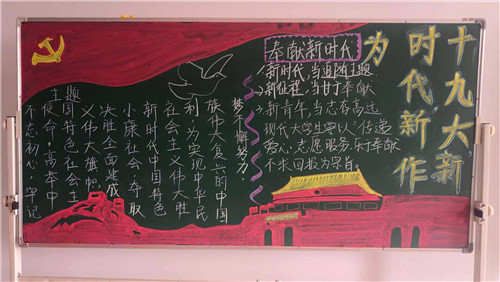 十九大,新
时代,新作
为
主题
不忘初心,牢记
使命,高举中
国特色社会主
义伟大旗帜,
决胜全面建成
小康社会,夺取
新时代中国特色
社会主义伟大胜
利,为实现中华民
族伟大复兴的中国
梦不懈努力。
奉献新时代
1.新时代,当追随主题
2.新征程,当甘于奉献
3.新青年,当志存高远
现代大学生要以“传递
爱心,志愿服务,乐于奉献
不求回报为宗旨。